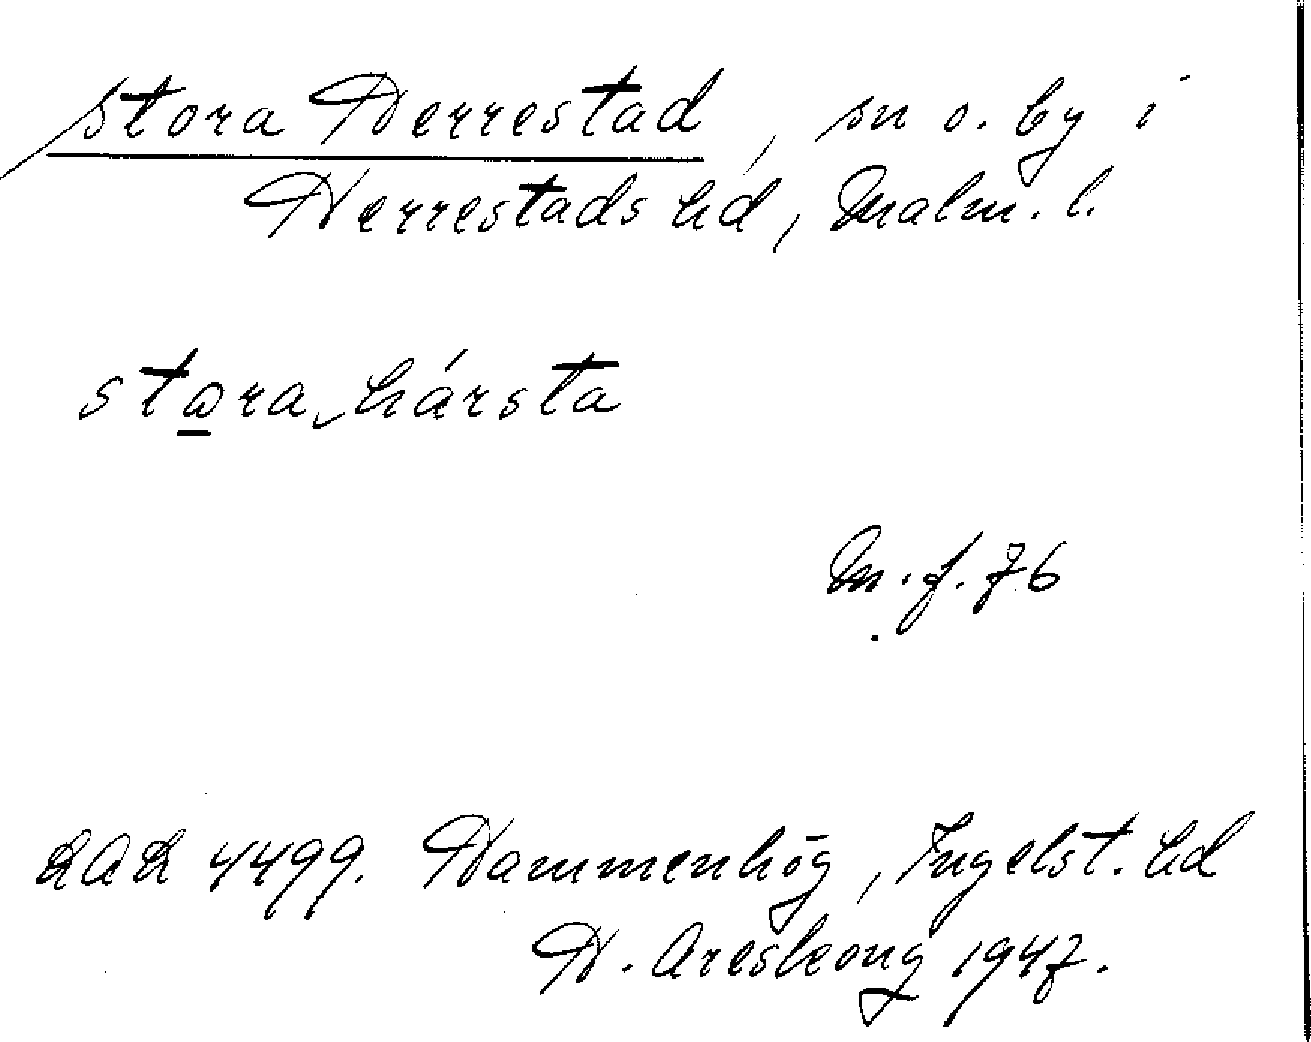 Stora Herrestad, sn o. by i
Herrestads hd, Malm. l.
sto̲ra ͜ hársta
M. f. 76
LAL 4499. Hammenhög, Ingelst. hd
H. Areskoug 1947.